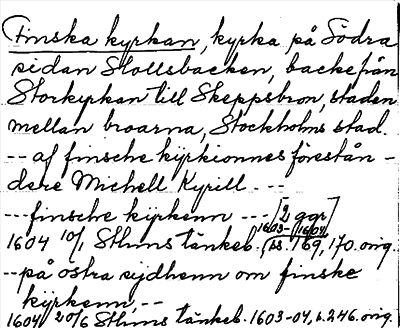 Finska kyrkan, kyrka på Södra
sidan Slottsbacken, backe från
Storkyrkan till Skeppsbron, staden
mellan broarna, Stockholms stad.
-- af finsche kÿrkionnes förestån-
dere Michell Kyrill ---
--- finsche kÿrkenn --- [2 ggr]
1604 10/1 Sthlms tänkeb. 1603-(1604) (ss. 169, 170. orig.
-- på östra sijdhenn om finske
kÿrkenn, --
1604 20/6 Sthlms tänkeb. 1603-04, s. 246. orig.